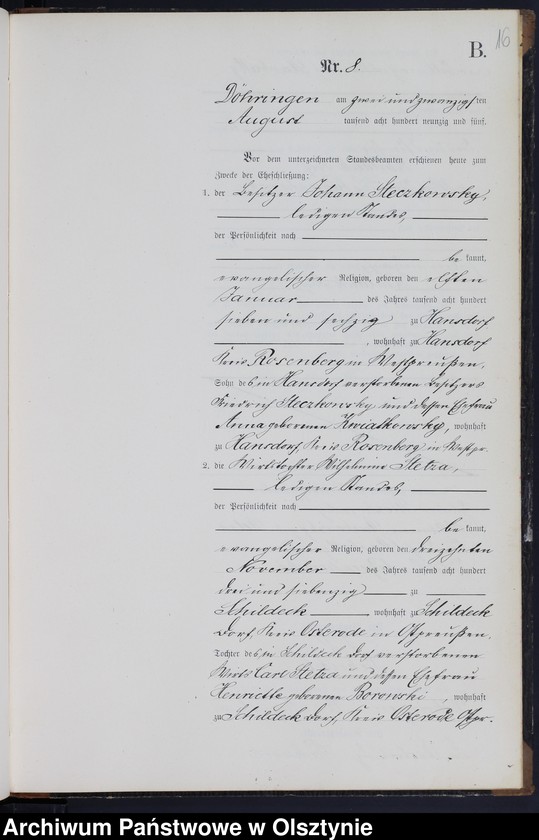 16
B.
Nr. 8.
Döhringen am zwei und zwanzigsten
August tausend acht hundert neunzig und fünf.
Vor dem unterzeichneten Standesbeamten erschienen heute zum
Zwecke der Eheschließung:
1. der Besitzer Johann Sleczkowsky,
ledigen Standes,
der Persönlichkeit nach
be kannt,
evangelischer Religion, geboren den elften
Januar des Jahres tausend acht hundert
sieben und sechzig zu Hansdorf
, wohnhaft zu Hansdorf
Kreis Rosenberg in Westpreußen.
Sohn des in Hansdorf verstorbenen Besitzers
Friedrich Sleczkowsky und dessen Ehefrau
Anna geborenen Kwiatkowsky, wohnhaft
zu Hansdorf, Kreis Rosenberg in Westpr.
2. die Wirtstochter Wilhelmine Sletza,
ledigen Standes,
der Persönlichkeit nach
be kannt,
evangelischer Religion, geboren den dreizehnten
November des Jahres tausend acht hundert
drei und siebenzig zu
Schildeck, wohnhaft zu Schildeck
Dorf, Kreis Osterode in Ostpreußen.
Tochter des in Schildeck Dorf verstorbenen
Wirts Carl Sletza und dessen Ehefrau
Henriette geborenen Borowski, wohnhaft
zu Schildeck Dorf, Kreis Osterode Ostpr.
Archiwum Państwowe w Olsztynie